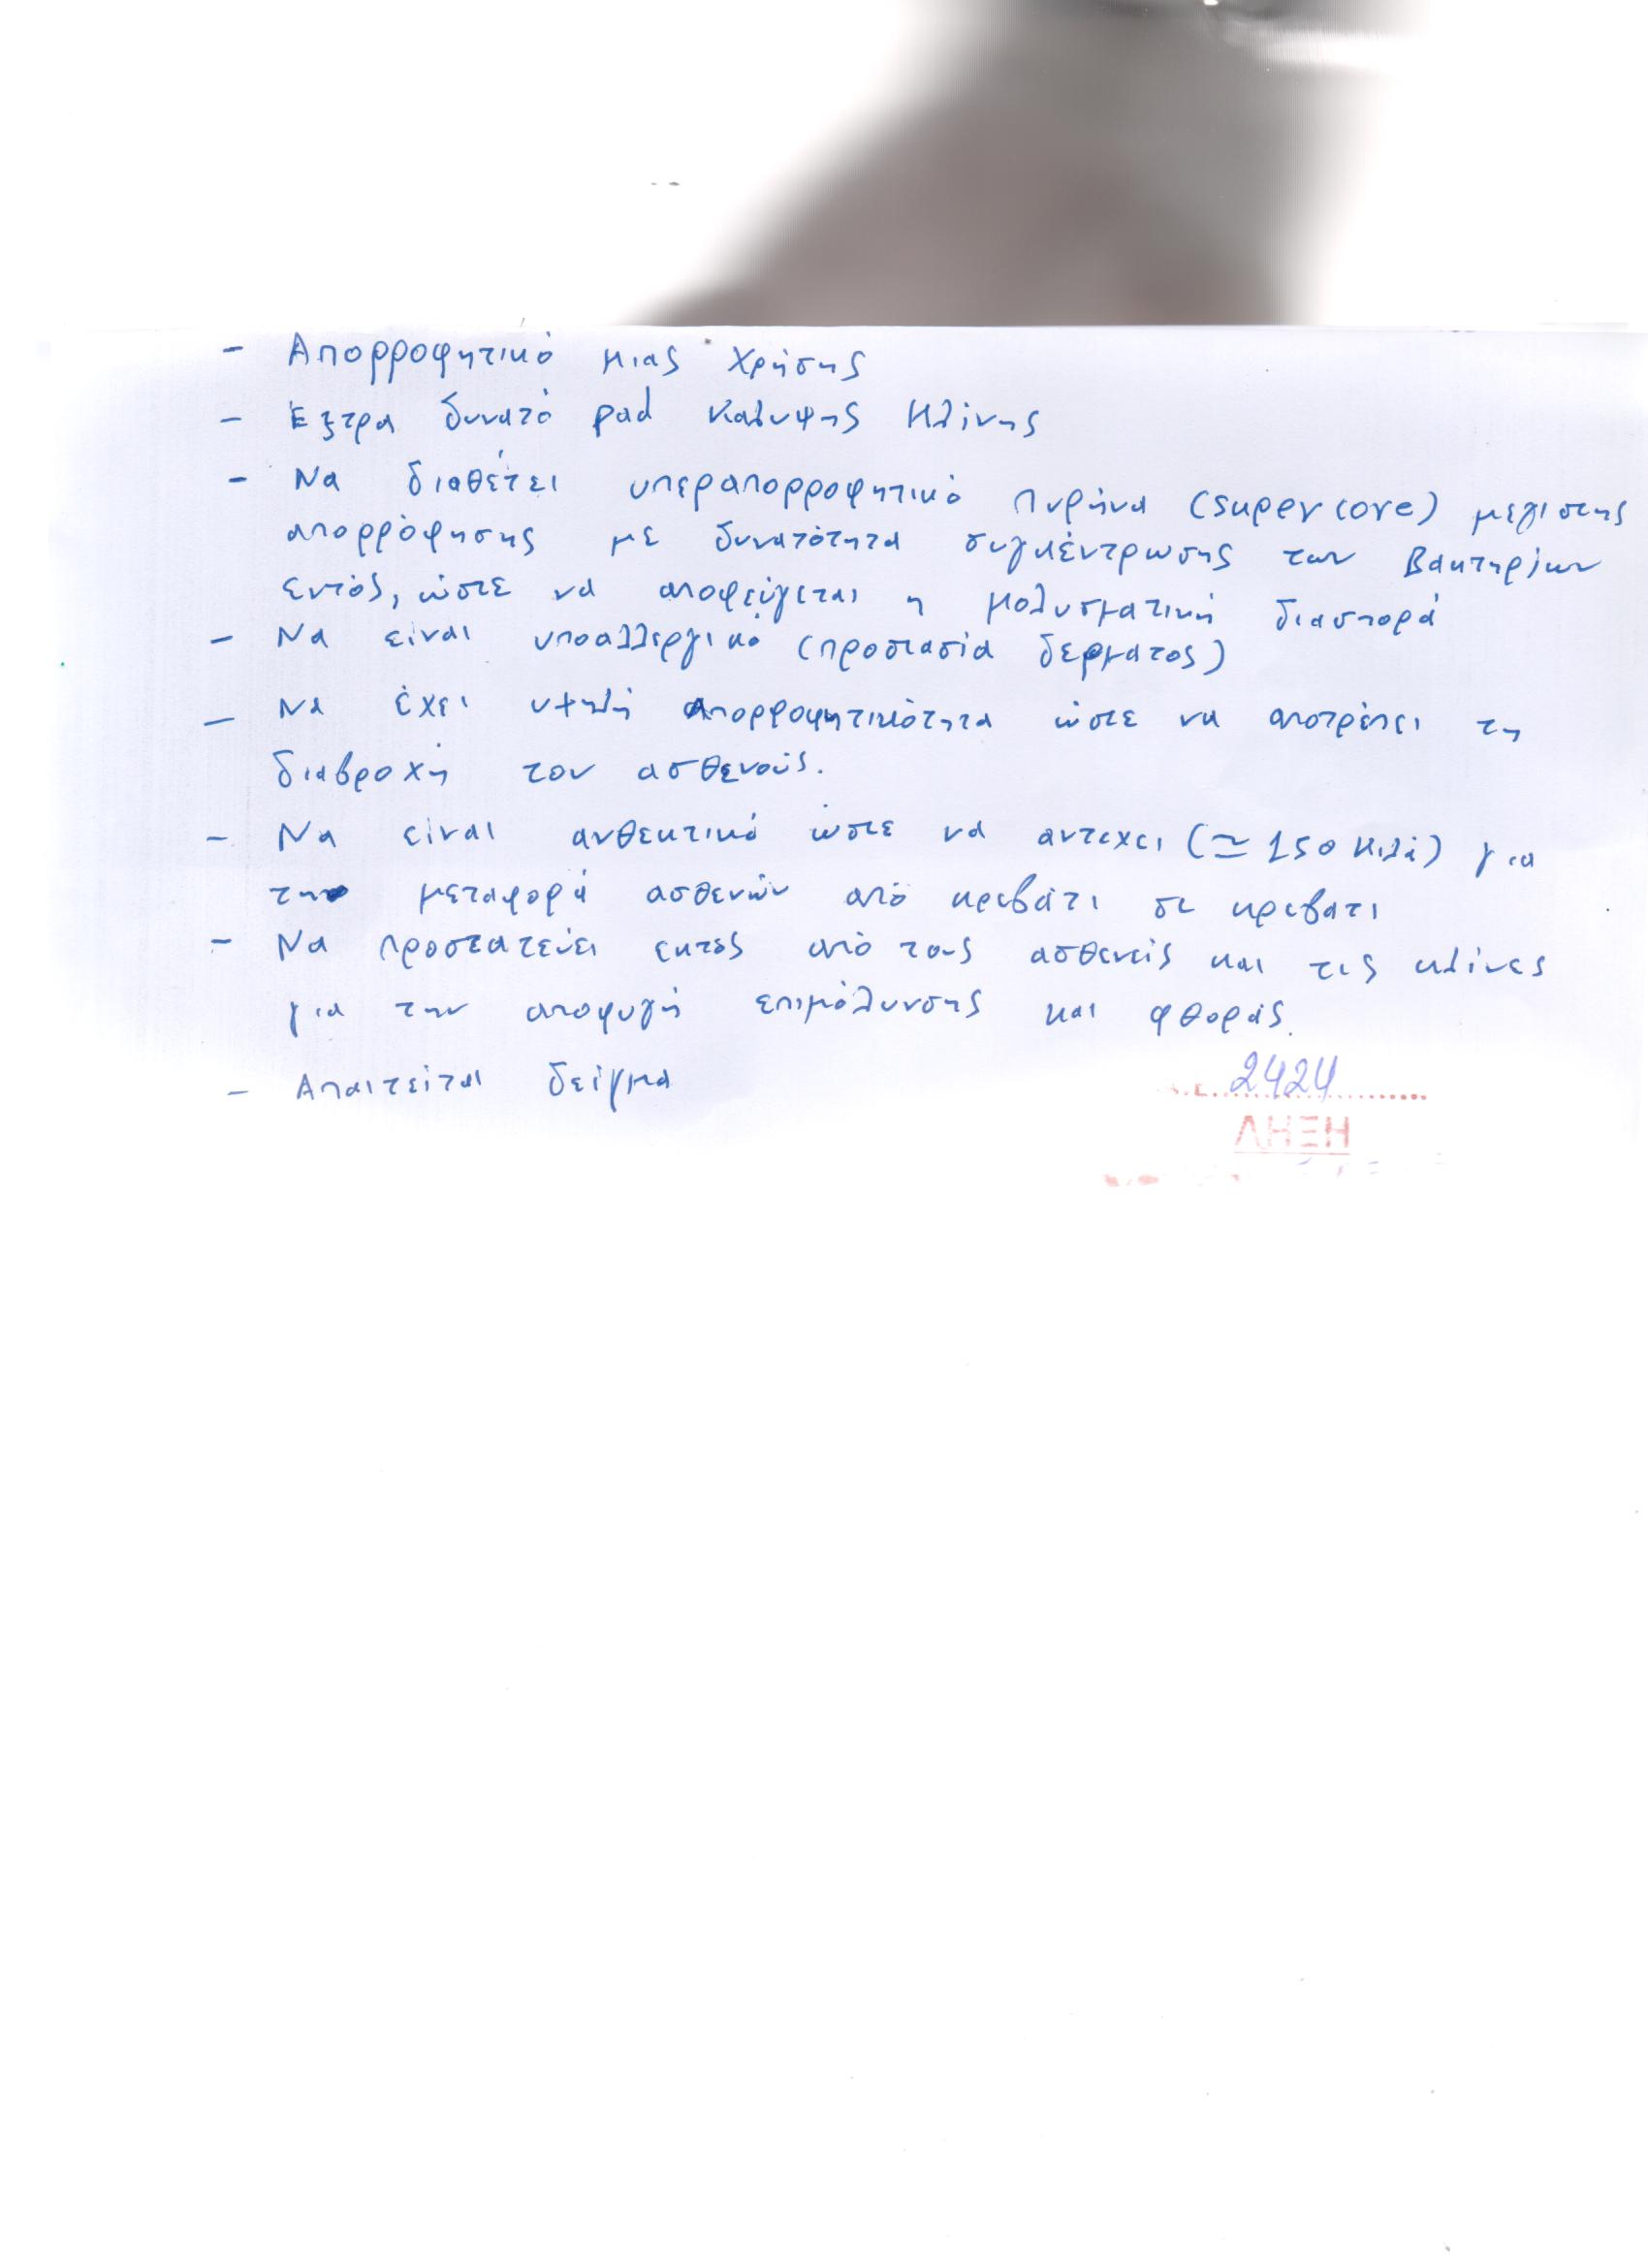 - Απορροφητικό μιας χρήσης
- Εξτρα δυνατό pad καλυψης κλίνης
- Να διαθέτει υπεραπορροφητικό πυρήνα (super core) μεγιστης
απορρόφησης με δυνατότητα συγκέντρωσης των βακτηρίων
εντός, ώστε να αποφεύγεται η μολυσματική διασπορά
- Να είναι υποαλλεργικό (προστασία δερματος)
- Να έχει υψηλή απορροφητικότητα ώστε να αποτρέπει τη
διαβροχή του ασθενούς.
- Να είναι ανθεκτικό ώστε να αντεχει (≃ 150 κιλά) για
την μεταφορά ασθενών από κρεβάτι σε κρεβατι
- Να προστατεύει εκτός από τους ασθενείς και τις κλίνες
για την αποφυγή επιμόλυνσης και φθοράς.
- Απαιτείται δείγμα
2424
ΛΗΞΗ